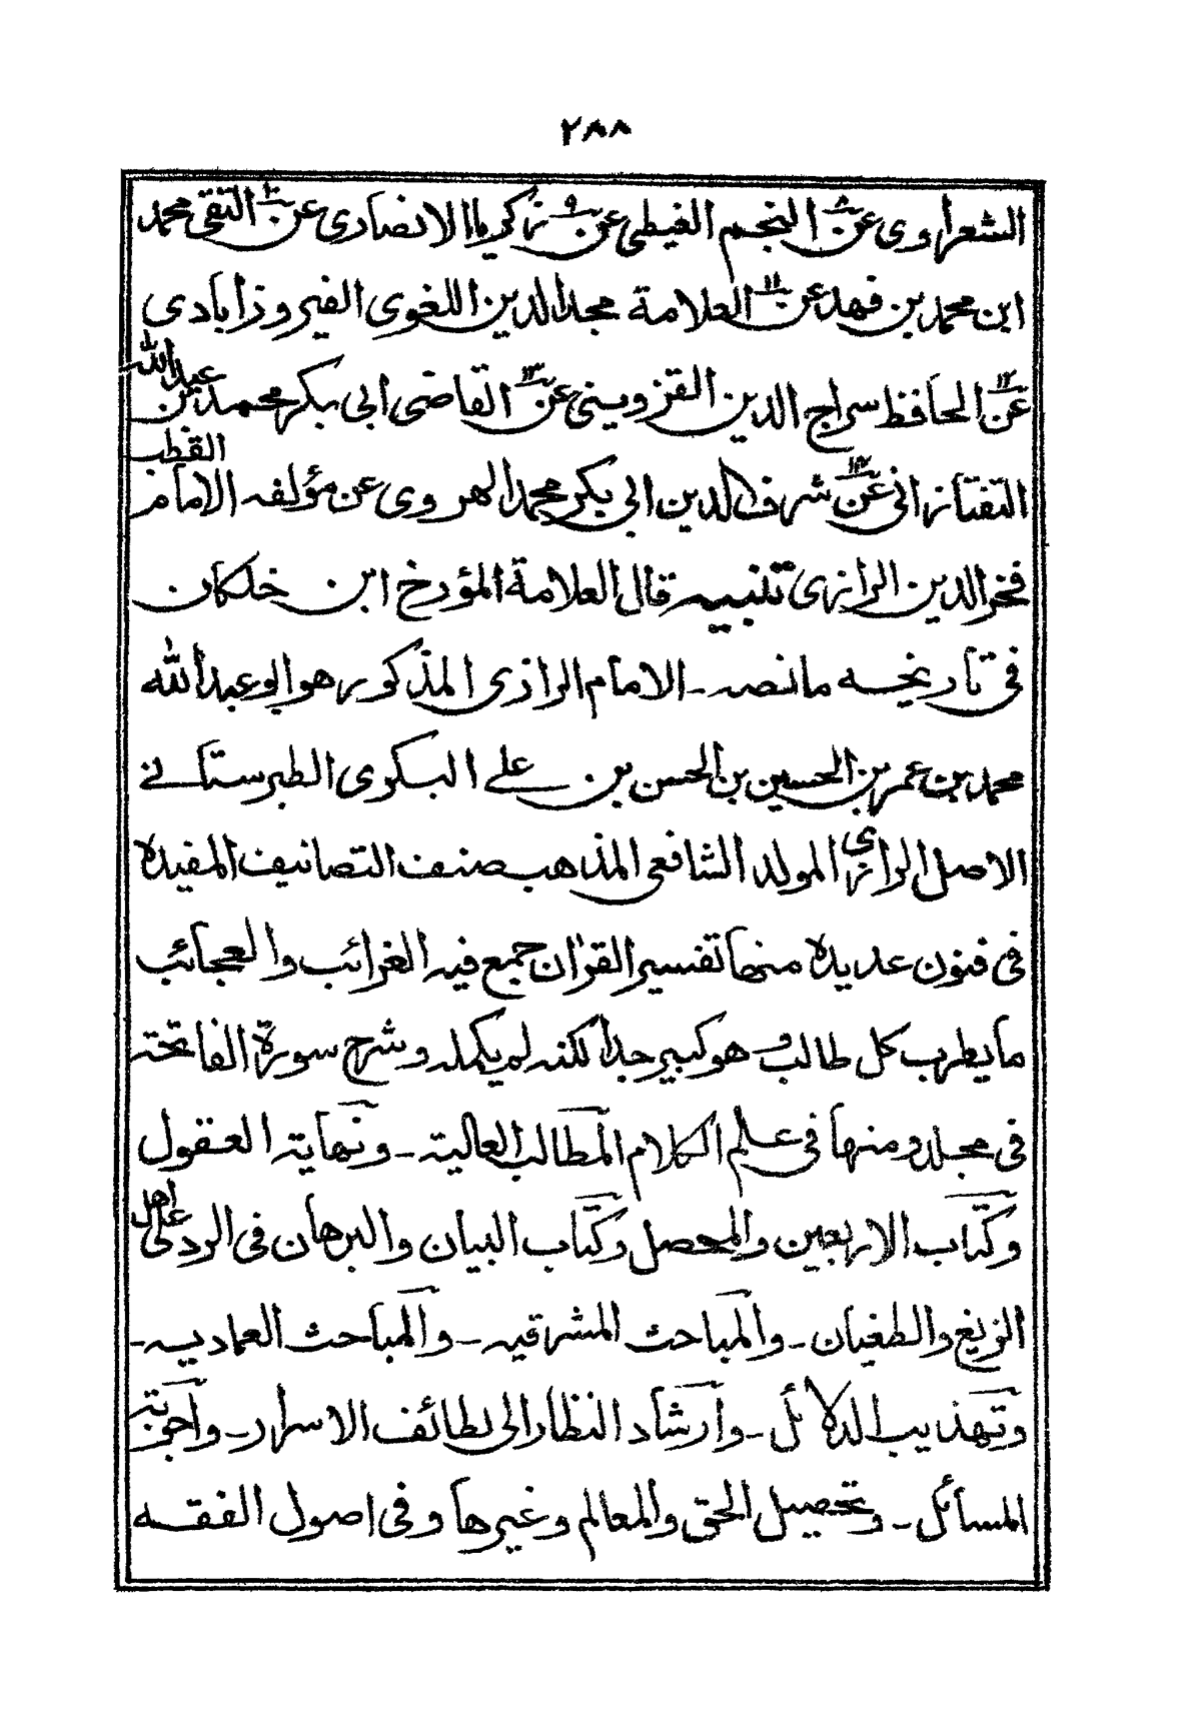 ٢٨٨
الشعراوى عن ٨ النجم الغيطى عن ٩ زكريا الانصارى عن ١٠ التقى محمد
ابن محمد بن فهد عن ١١ العلامة مجد الدين اللغوى الفيروزابادى
عن ١٢ الحافظ سراج الدين القزوينى عن ١٣ القاضى ابى بكر محمد بن عبد الله
التفتازانى عن ١٤ شرف الدين ابى بكر محمد الهروى عن مؤلفه الامام القطب
فخر الدين الرازى تنبيه قال العلامة المؤرخ ابن خلكان
فى تاريخه مانصه ـ الامام الرازى المذكور هو ابو عبد الله
محمد بن عمر بن الحسين بن الحسن بن على البكرى الطبرستانے
الاصل الرازى المولد الشافعى المذهب صنف التصانيف المفيدة
فى فنون عديدة منها تفسير القرآن جمع فيه الغرائب والعجائب
ما يطرب كل طالب وهو كبير جداً لكنه لم يكمله وشرح سورة الفاتحة
فى مجلد ومنها فى علم الكلام المطالب العالية ـ ونهاية العقول
وكتاب الاربعين والمحصل وكتاب البيان والبرهان فى الرد على اهل
الزيغ والطغيان ـ والمباحث المشرقيه ـ والمباحث العماديه ـ
وتهذيب الدلائل ـ وارشاد النظار الى لطائف الاسرار ـ واجوبة
المسائل ـ وتحصيل الحق والمعالم وغيرها وفى اصول الفقه